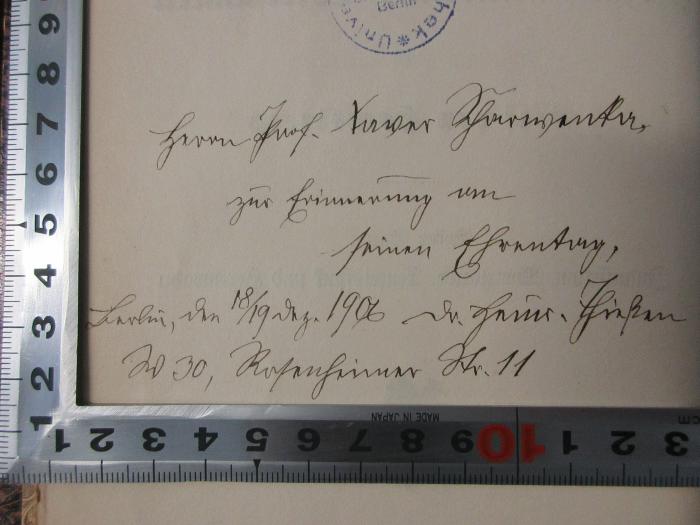 Berlin
Herrn Prof. Xaver Scharwenka,
zur Erinnerung an
seinen Ehrentag,
Berlin, den 18/19 Dez. 1906 Dr. Heinr. Thießen
W 30, Rosenheimer Str. 11
9 8 7 6 5 4 3 2 1
1 2 3 4 5 6 7 8 9 10 1 2 3 cm
MADE IN JAPAN